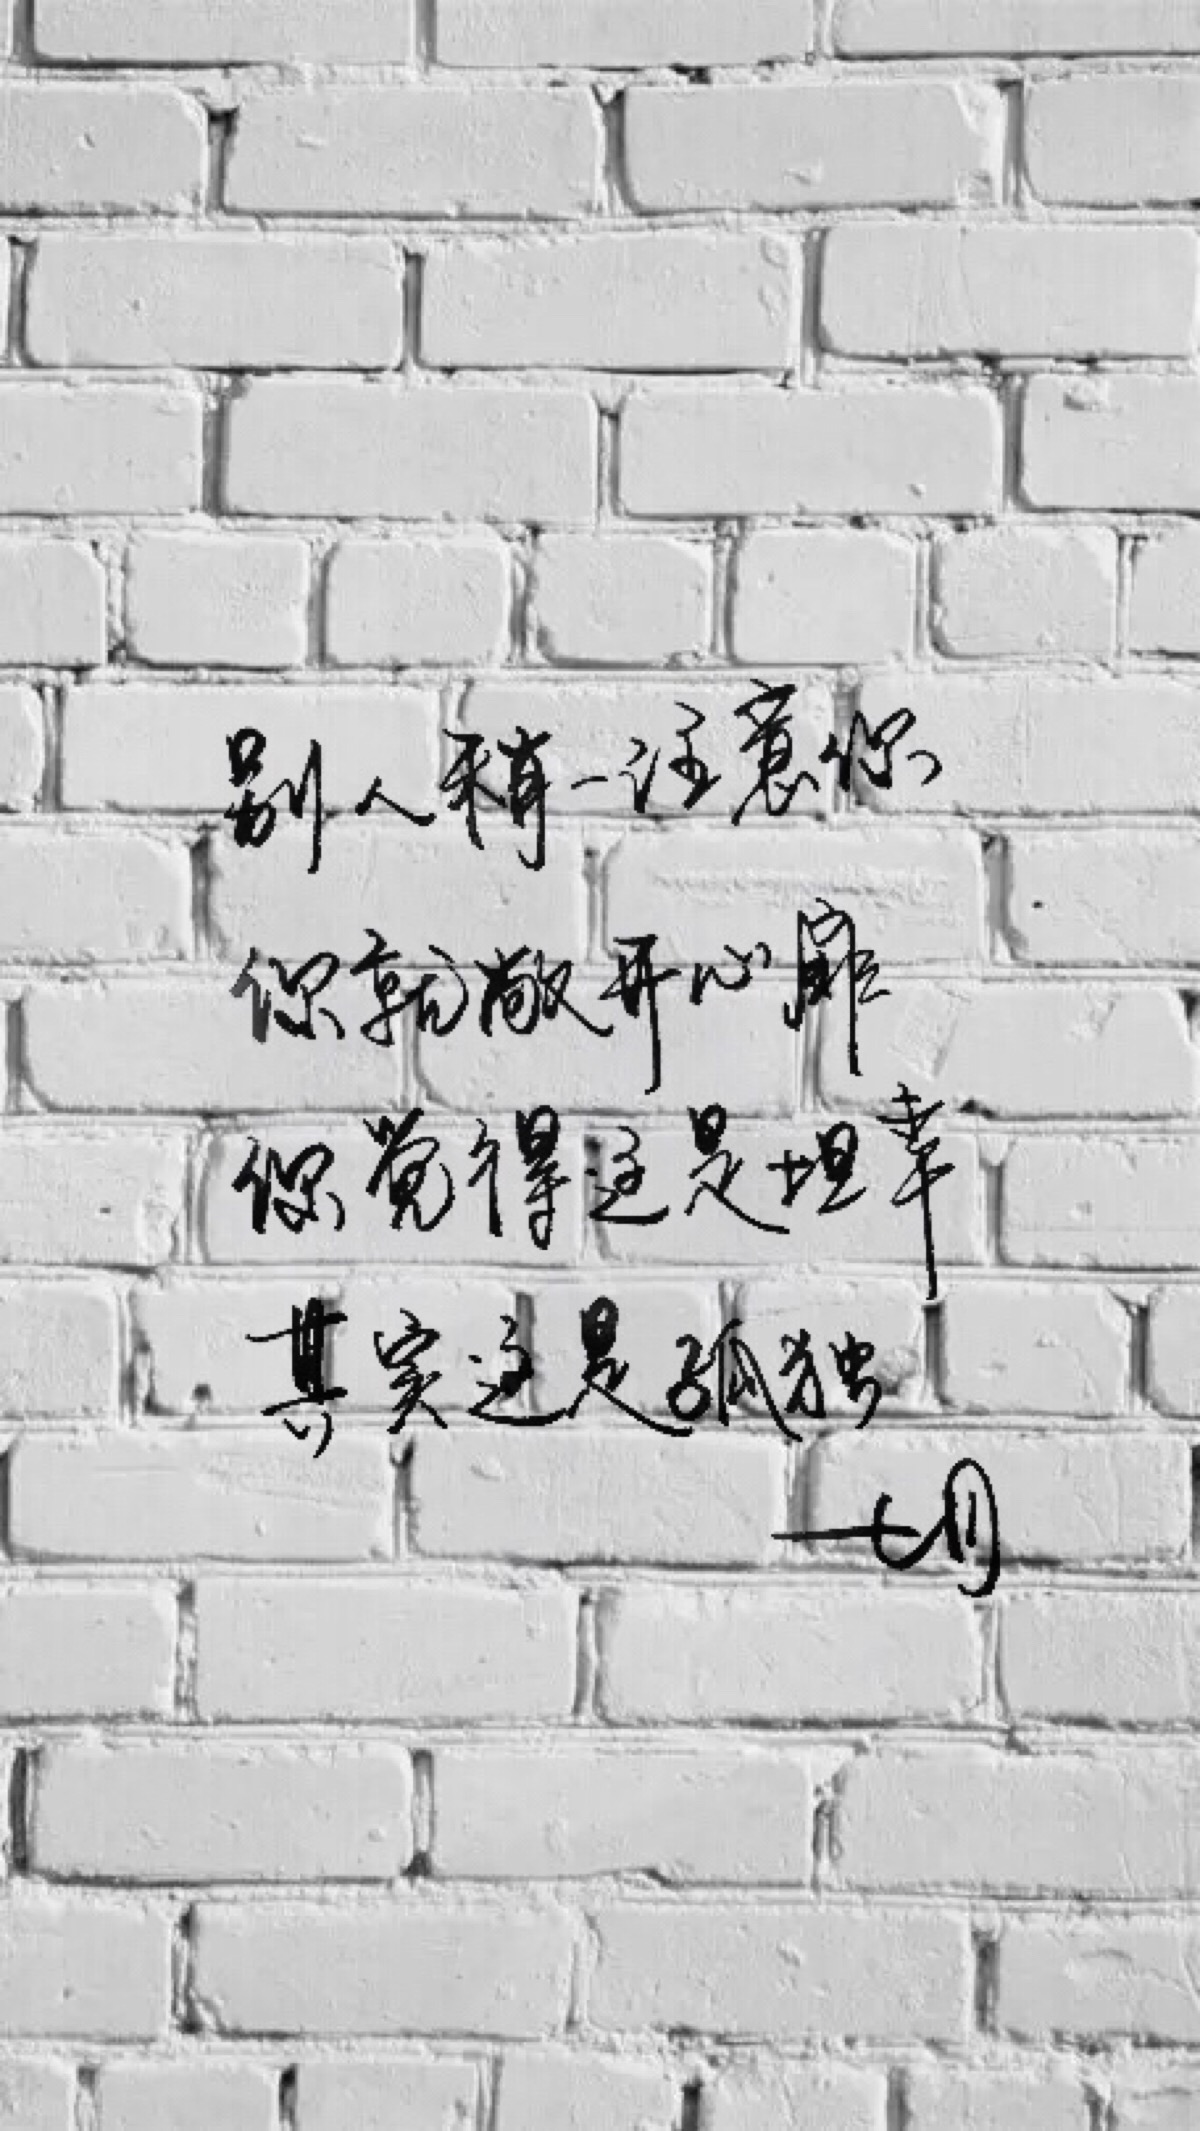 别人稍一注意你
你就敞开心扉
你觉得这是坦幸
其实这是孤独
一七月